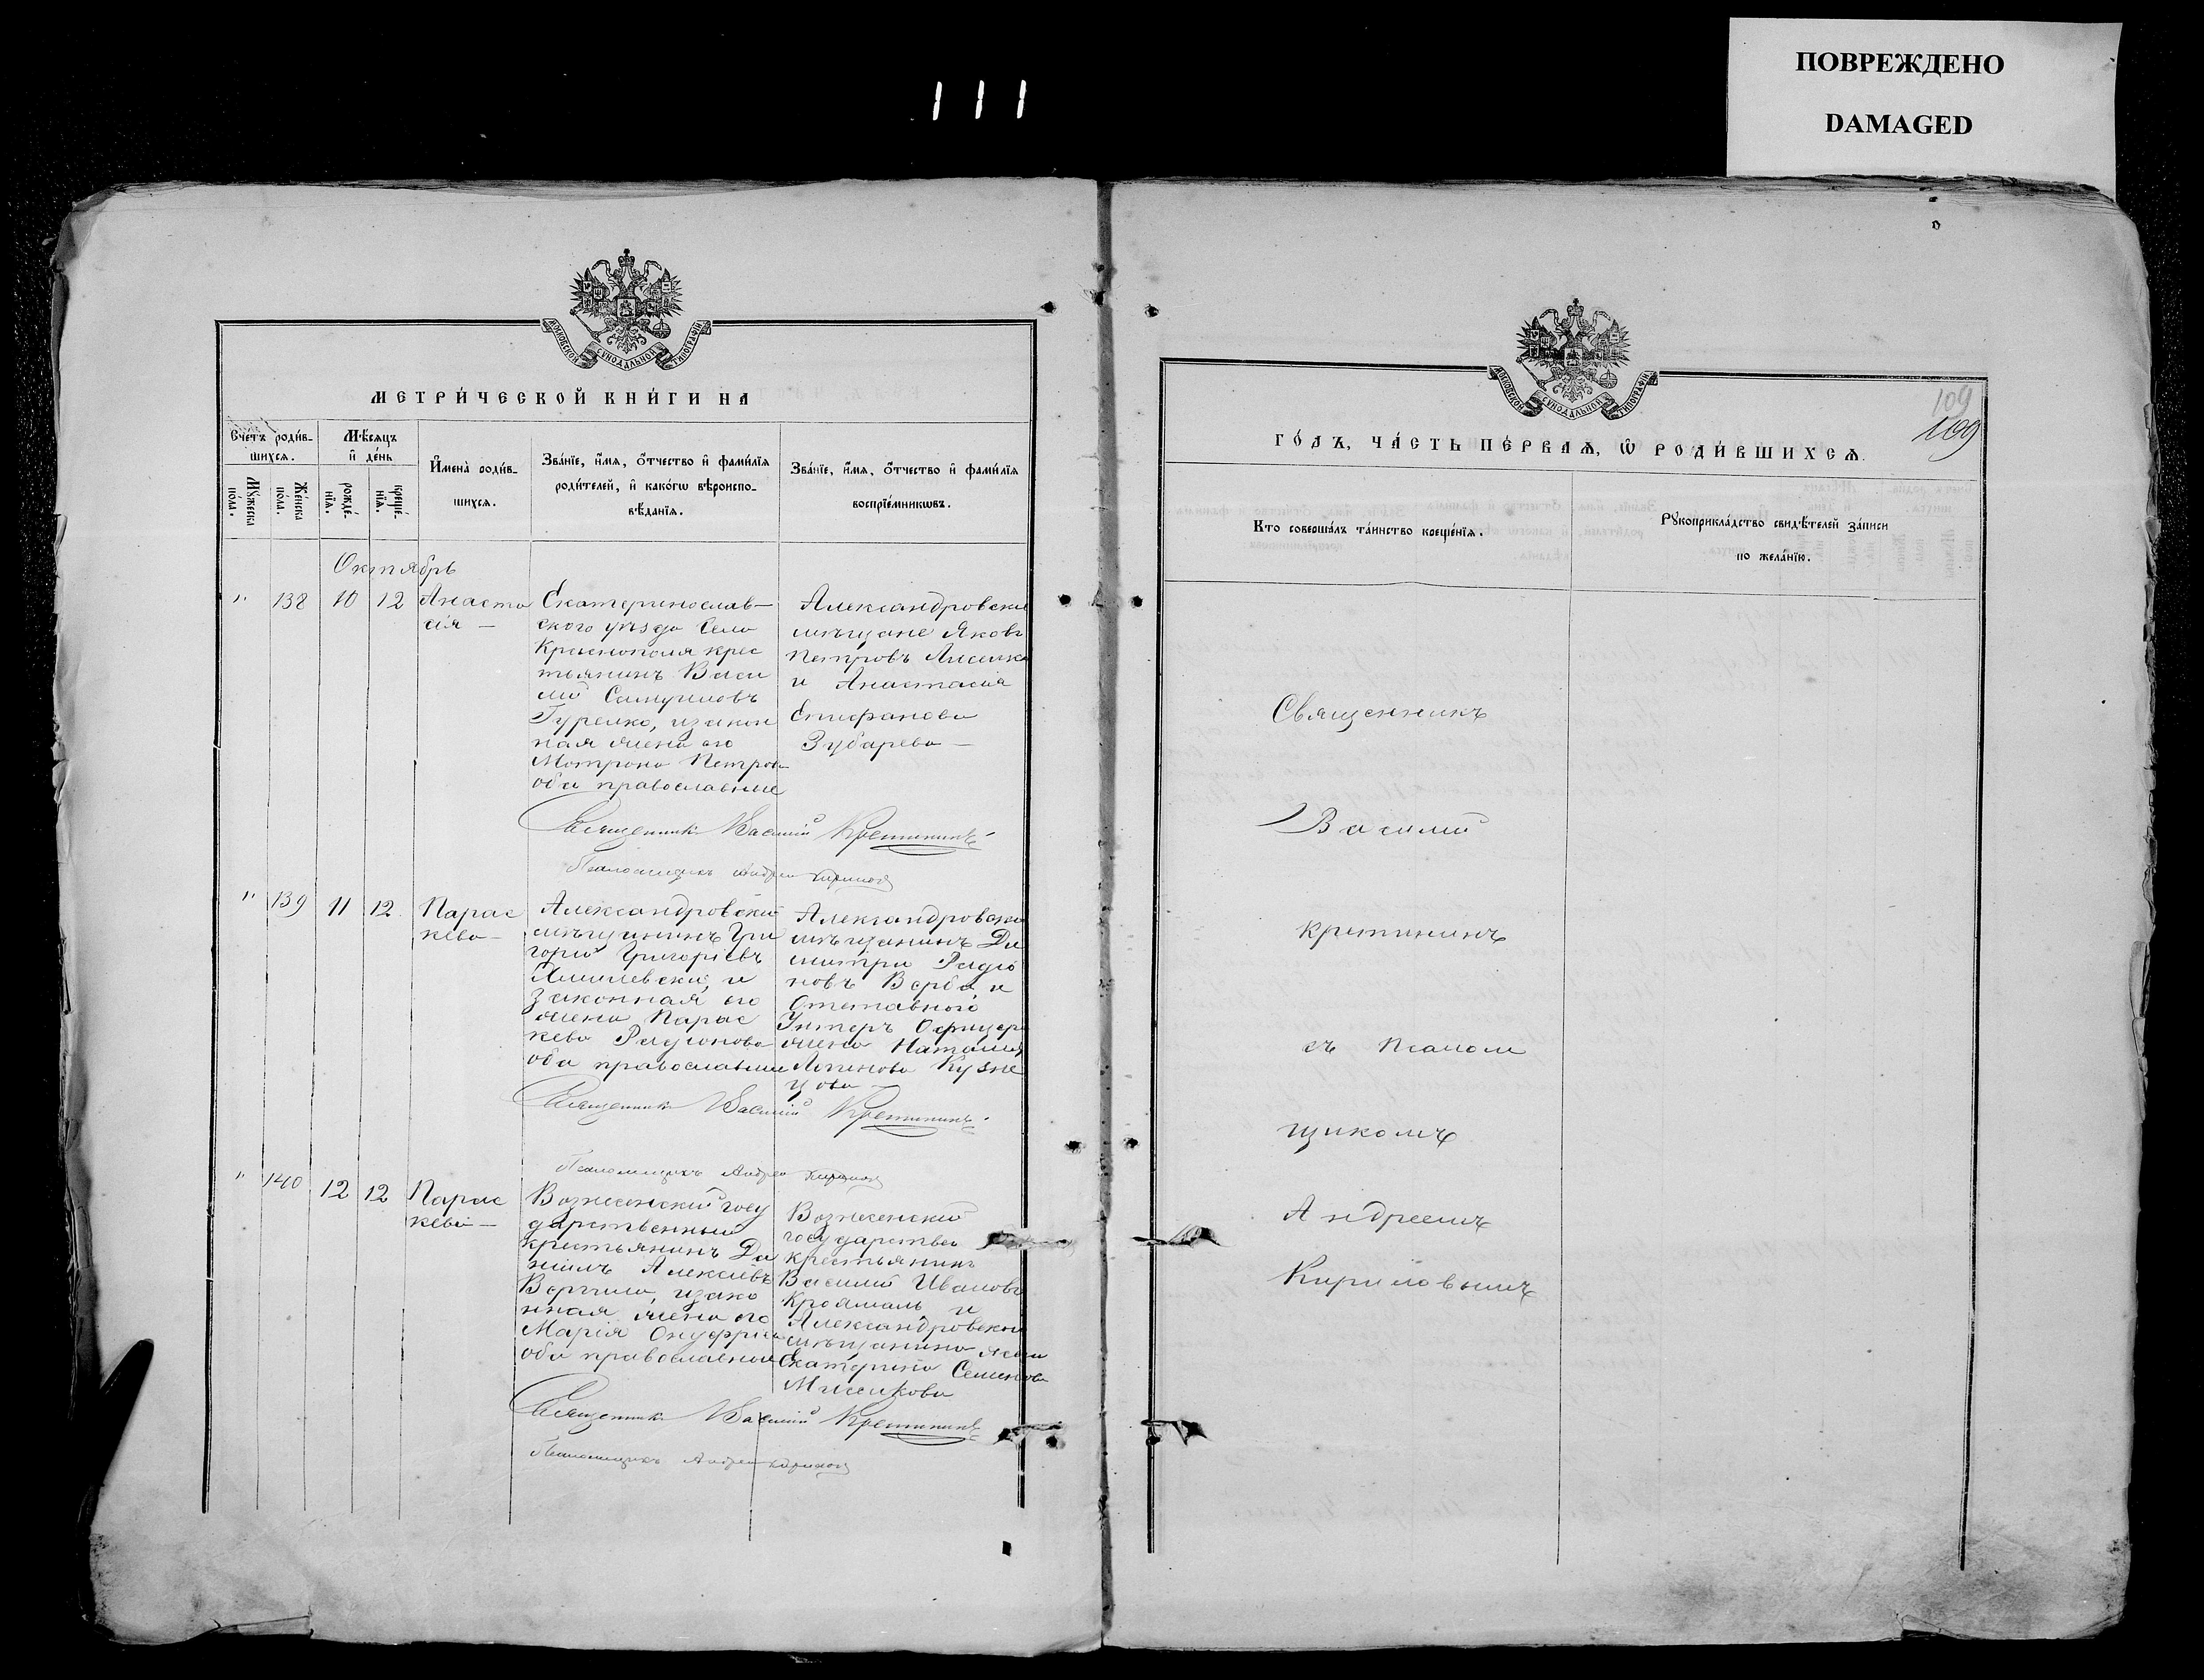 ПОВРЕЖДЕНО
DAMAGED
111
МОСКОВСКОЙ СѴНОДАЛЬНОЙ ТИПОГРАФІИ
МЕТРИ́ЧЕСКОЙ КНИ́ГИ НА
Сче́тъ роди́в-
шихсѧ.
Мѣ́сѧцъ
и҆ де́нь
Мꙋ́жеска
по́ла.
Же́нска
по́ла.
рожде́-
нїѧ.
креще́-
нїѧ.
И҆мена̀ роди́в-
шихсѧ.
Зва́нїе, и҆́мѧ, ѻ҆́тчество и҆ фами́лїѧ
роди́телей, и҆ како́гѡ вѣроиспо-
вѣ́данїѧ.
Зва́нїе, и҆́мѧ, ѻ҆́тчество и҆ фами́лїѧ
воспрїе́мникѡвъ.
Октябрь
" 138 10 12
Анаста
сія —
Екатеринослав-
ского уѣзда Села
Краснополя крес
тьянинъ Васи
лій Самуиловъ
Гуренко, изакон
ная жена его
Матрона Петрова
оба православные
Александровскіе
мѣщане Яковъ
Петровъ
и Анастасія
Епифанова
Зубарева —
Священникъ Василій Кретининъ
Псаломщикъ Андрей Кириловъ
" 139 11 12
Парас
кева —
Александровскій
мѣщанинъ Гри
горій Григоріевъ
и
Законная его
жена Парас
кева Радіонова
оба православные
Александровскій
мѣщанинъ Ди
митрій Радіо
новъ Верба и
Отставного
Унтеръ Офицера
жена Наталия
Кузне
цова —
Священникъ Василій Кретининъ
Псаломщикъ Андрей Кириловъ
" 140 12 12
Парас
кева —
Вознесенскій госу
дарственный
крестьянинъ Да
ніилъ Алексіевъ
изако
нная жена его
Марія Онуфріева
оба православные
Вознесенскій
государствен
крестьянинъ
Василій Ивановъ
и
Александровская
мѣщанина жена
Екатерина Семенова
Священникъ Василій Кретининъ
Псаломщикъ Андрей Кириловъ
МОСКОВСКОЙ СѴНОДАЛЬНОЙ ТИПОГРАФІИ
109
109
ГО́ДЪ, ЧА́СТЬ ПЕ́РВАѦ, Ѡ҆ РОДИ́ВШИХСѦ.
Кто соверша́лъ та́инство креще́нїѧ.
Рꙋкоприкла́дство свидѣ́телей за́писи
по жела́нїю.
Священникъ
Василій
Кретининъ
съ Псалом
щикомъ
Андреемъ
Кириловымъ